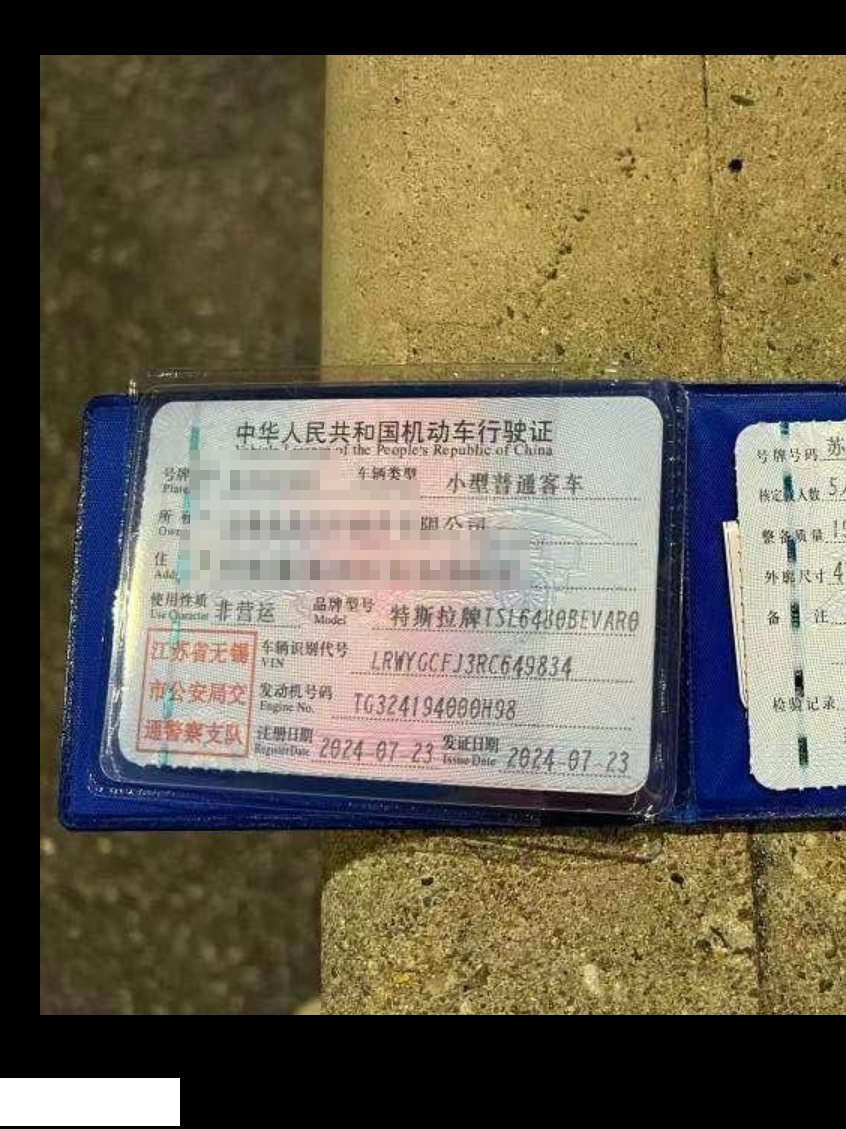 中华人民共和国机动车行驶证
of the People's Republic of China
号牌 车辆类型 小型普通客车
Plate
所 限公司
住
使用性质 非营运 品牌型号 特斯拉牌TSL6480BEVAR0
Use Character Model
车辆识别代号 LRWYGCFJ3RC649834
VIN
发动机号码 TG324194000H98
Engine No.
注册日期 2024-07-23 发证日期 2024-07-23
Register Date Issue Date
江苏省无锡
市公安局交
通警察支队
号牌号码 苏
核定载人数 5
整备质量 19
外廓尺寸 4
备 注
检验记录